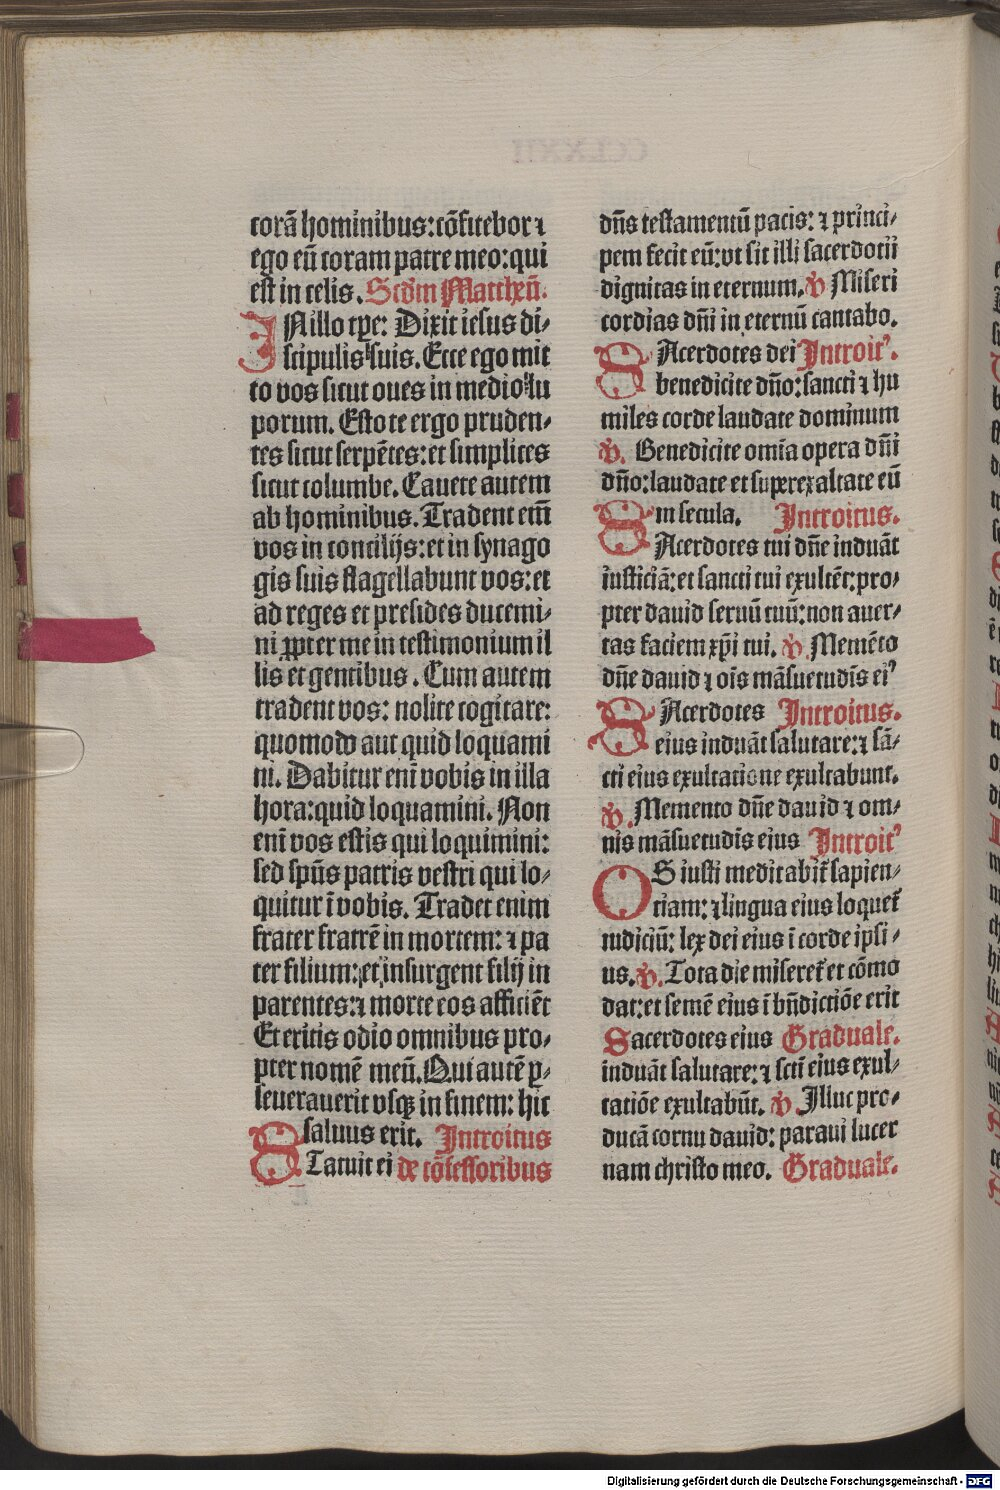 corā hominibus: cōfitebor ⁊
ego eū coram patre meo: qui
est in celis. Scd̄m Matthеū.
IN illo tp̄e: Dixit iesus di-
scipulis suis. Ecce ego mit
to vos sicut oues in medio lu
porum. Estote ergo pruden-
tes sicut serpētes: et simplices
sicut columbe. Cauete autem
ab hominibus. Tradent em̄
vos in concilijs: et in synago
gis suis flagellabunt vos: et
ad reges et presides ducemi-
ni ꝓpter me in testimonium il
lis et gentibus. Cum autem
tradent vos: nolite cogitare:
quomodo aut quid loquami
ni. Dabitur eni vobis in illa
hora: quid loquamini. Non
eni vos estis qui loquimini:
sed sp̄us patris vestri qui lo-
quitur ī vobis. Tradet enim
frater fratrē in mortem: ⁊ pa
ter filium: et insurgent filij in
parentes: ⁊ morte eos afficiēt
Et eritis odio omnibus pro-
pter nomē meū. Qui autē ꝑ-
seuerauerit vsqꝫ in finem: hic
saluus erit. Introitus
STatuit ei de cōfessoribus
dn̄s testamentū pacis: ⁊ princi-
pem fecit eū: vt sit illi sacerdotii
dignitas in eternum. ꝟ Miseri
cordias dn̄i in eternū cantabo.
SAcerdotes dei Introitꝰ.
benedicite dn̄o: sancti ⁊ hu
miles corde laudate dominum
ꝟ. Benedicite om̄ia opera dn̄i
dn̄o: laudate et superexaltate eū
in secula. Introitus.
SAcerdotes tui dn̄e induāt
iusticiā: et sancti tui exultēt: pro-
pter dauid seruū tuū: non auer-
tas faciem xp̄i tui. ꝟ. Memēto
dn̄e dauid ⁊ ois māsuetudīs eiꝰ
SAcerdotes Introitus.
eius induāt salutare: ⁊ sā-
cti eius exultatione exultabunt.
ꝟ. Memento dn̄e dauid ⁊ om-
nis māsuetudīs eius Introitꝰ
OS iusti meditabit̄ sapien-
tiam: ⁊ lingua eius loquet̄
iudiciū: lex dei eius ī corde ipsi-
us. ꝟ. Tota die miseret̄ et cōmo
dat: et semē eius ī bn̄dictiōe erit
Sacerdotes eius Graduale.
induāt salutare: ⁊ scti eius exul-
tatiōe exultabūt. ꝟ. Illuc pro-
ducā cornu dauid: paraui lucer
nam christo meo. Graduale.
Digitalisierung gefördert durch die Deutsche Forschungsgemeinschaft - DFG